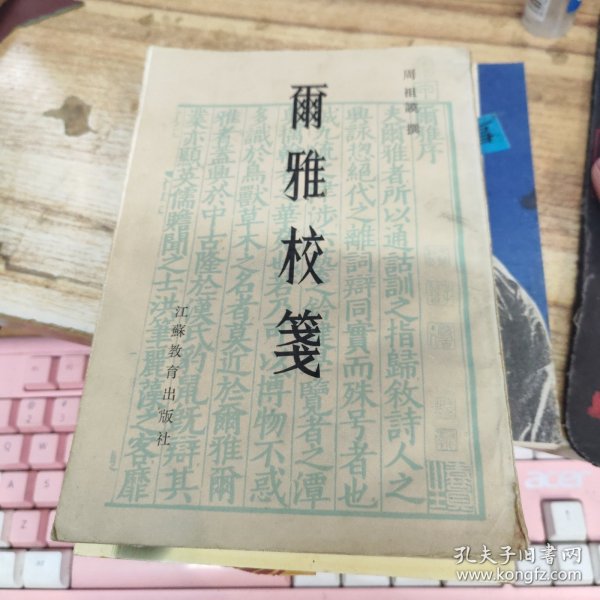 周祖謨 撰
爾雅校箋
江蘇教育出版社
爾雅序
夫爾雅者所以通詁訓之指歸敘詩人之
興詠揔絕代之離詞辯同實而殊号者也
覽者之潭
多識於鳥獸草木之名者莫近於爾雅爾
雅者蓋興於中古隆於漢氏
英儒贍聞之士洪筆麗藻之客靡
acer
孔夫子旧书网
www.kongfz.com